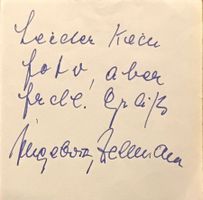 Leider kein
foto, aber
frdl. Grüße
Ingeborg Zellmann